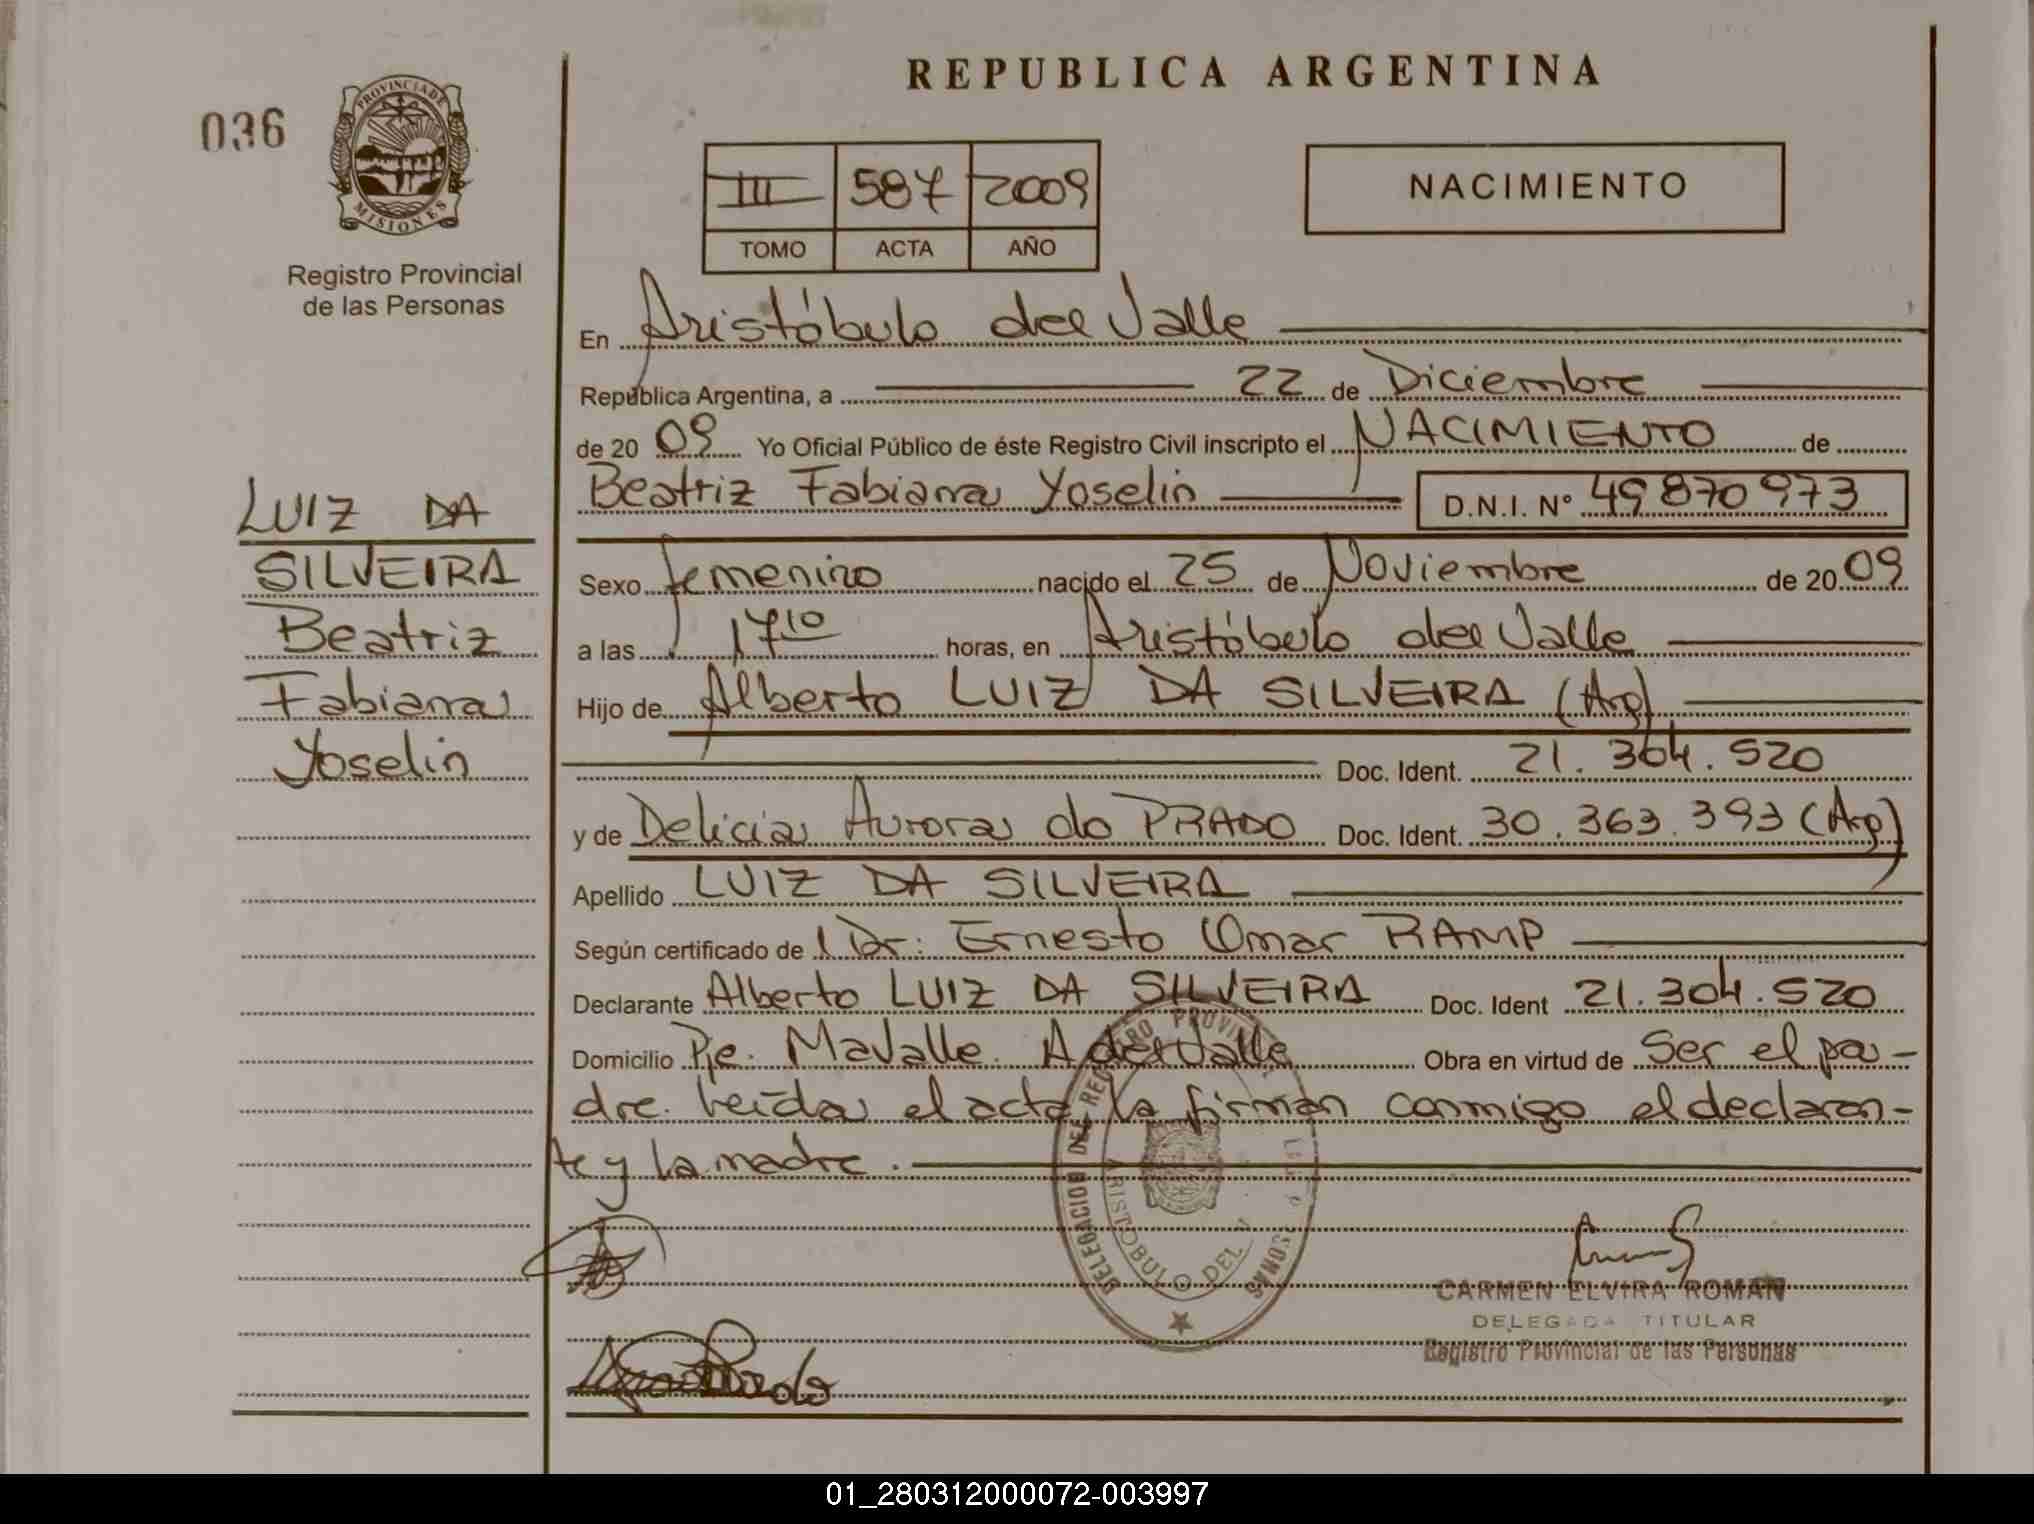 REPUBLICA ARGENTINA
036
PROVINCIA DE
MISIONES
Registro Provincial
de las Personas
III 587 2009
TOMO ACTA AÑO
NACIMIENTO
En Aristóbulo del Valle
República Argentina, a 22 de Diciembre
de 20 09 Yo Oficial Público de éste Registro Civil inscripto el NACIMIENTO de
Beatriz Fabiana Yoselin D.N.I. N° 49 870 973
LUIZ DA
SILVEIRA
Beatriz
Fabiana
Yoselin
Sexo femenino nacido el 25 de Noviembre de 20 09
a las 17 10 horas, en Aristóbulo del Valle
Hijo de Alberto LUIZ DA SILVEIRA (Arg)
Doc. Ident. 21.304.520
y de Delicia Aurora do PRADO Doc. Ident. 30.363.393 (Arg)
Apellido LUIZ DA SILVEIRA
Según certificado de Dr: Ernesto Omar RAMP
Declarante Alberto LUIZ DA SILVEIRA Doc. Ident 21.304.520
Domicilio Pje. Mavalle. A del Valle Obra en virtud de Ser el pa-
dre. Leída el acta la firman conmigo el declaran-
te y la madre.
DELEGACION DEL REGISTRO PROVINCIAL
ARISTOBULO DEL V
CARMEN ELVIRA ROMAN
DELEGADA TITULAR
Registro Provincial de las Personas
01_280312000072-003997